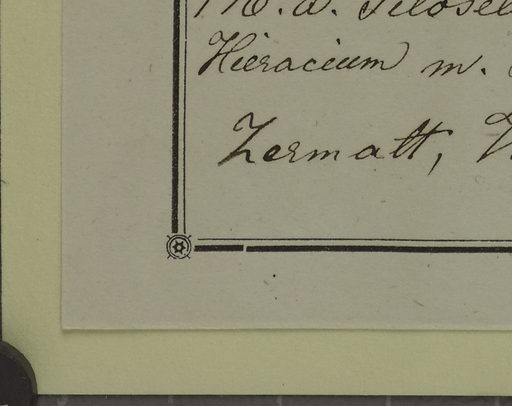 Pilosel
Hieracium m.
Zermatt,